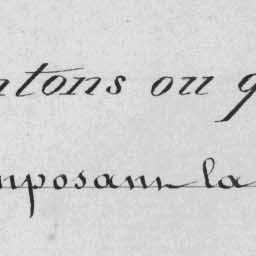 ntons ou q
mposant la